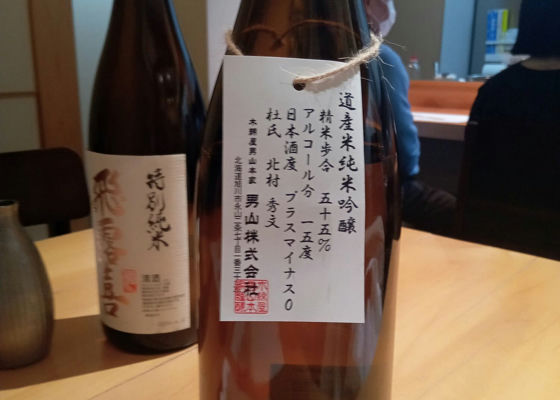 道産米純米吟醸
精米歩合 五十五%
アルコール分 一五度
日本酒度 プラスマイナス0
杜氏 北村 秀文
木綿屋男山本家 男山株式会社
北海道旭川市永山二条七丁目一番三十三
特別純米
飛露喜
清酒